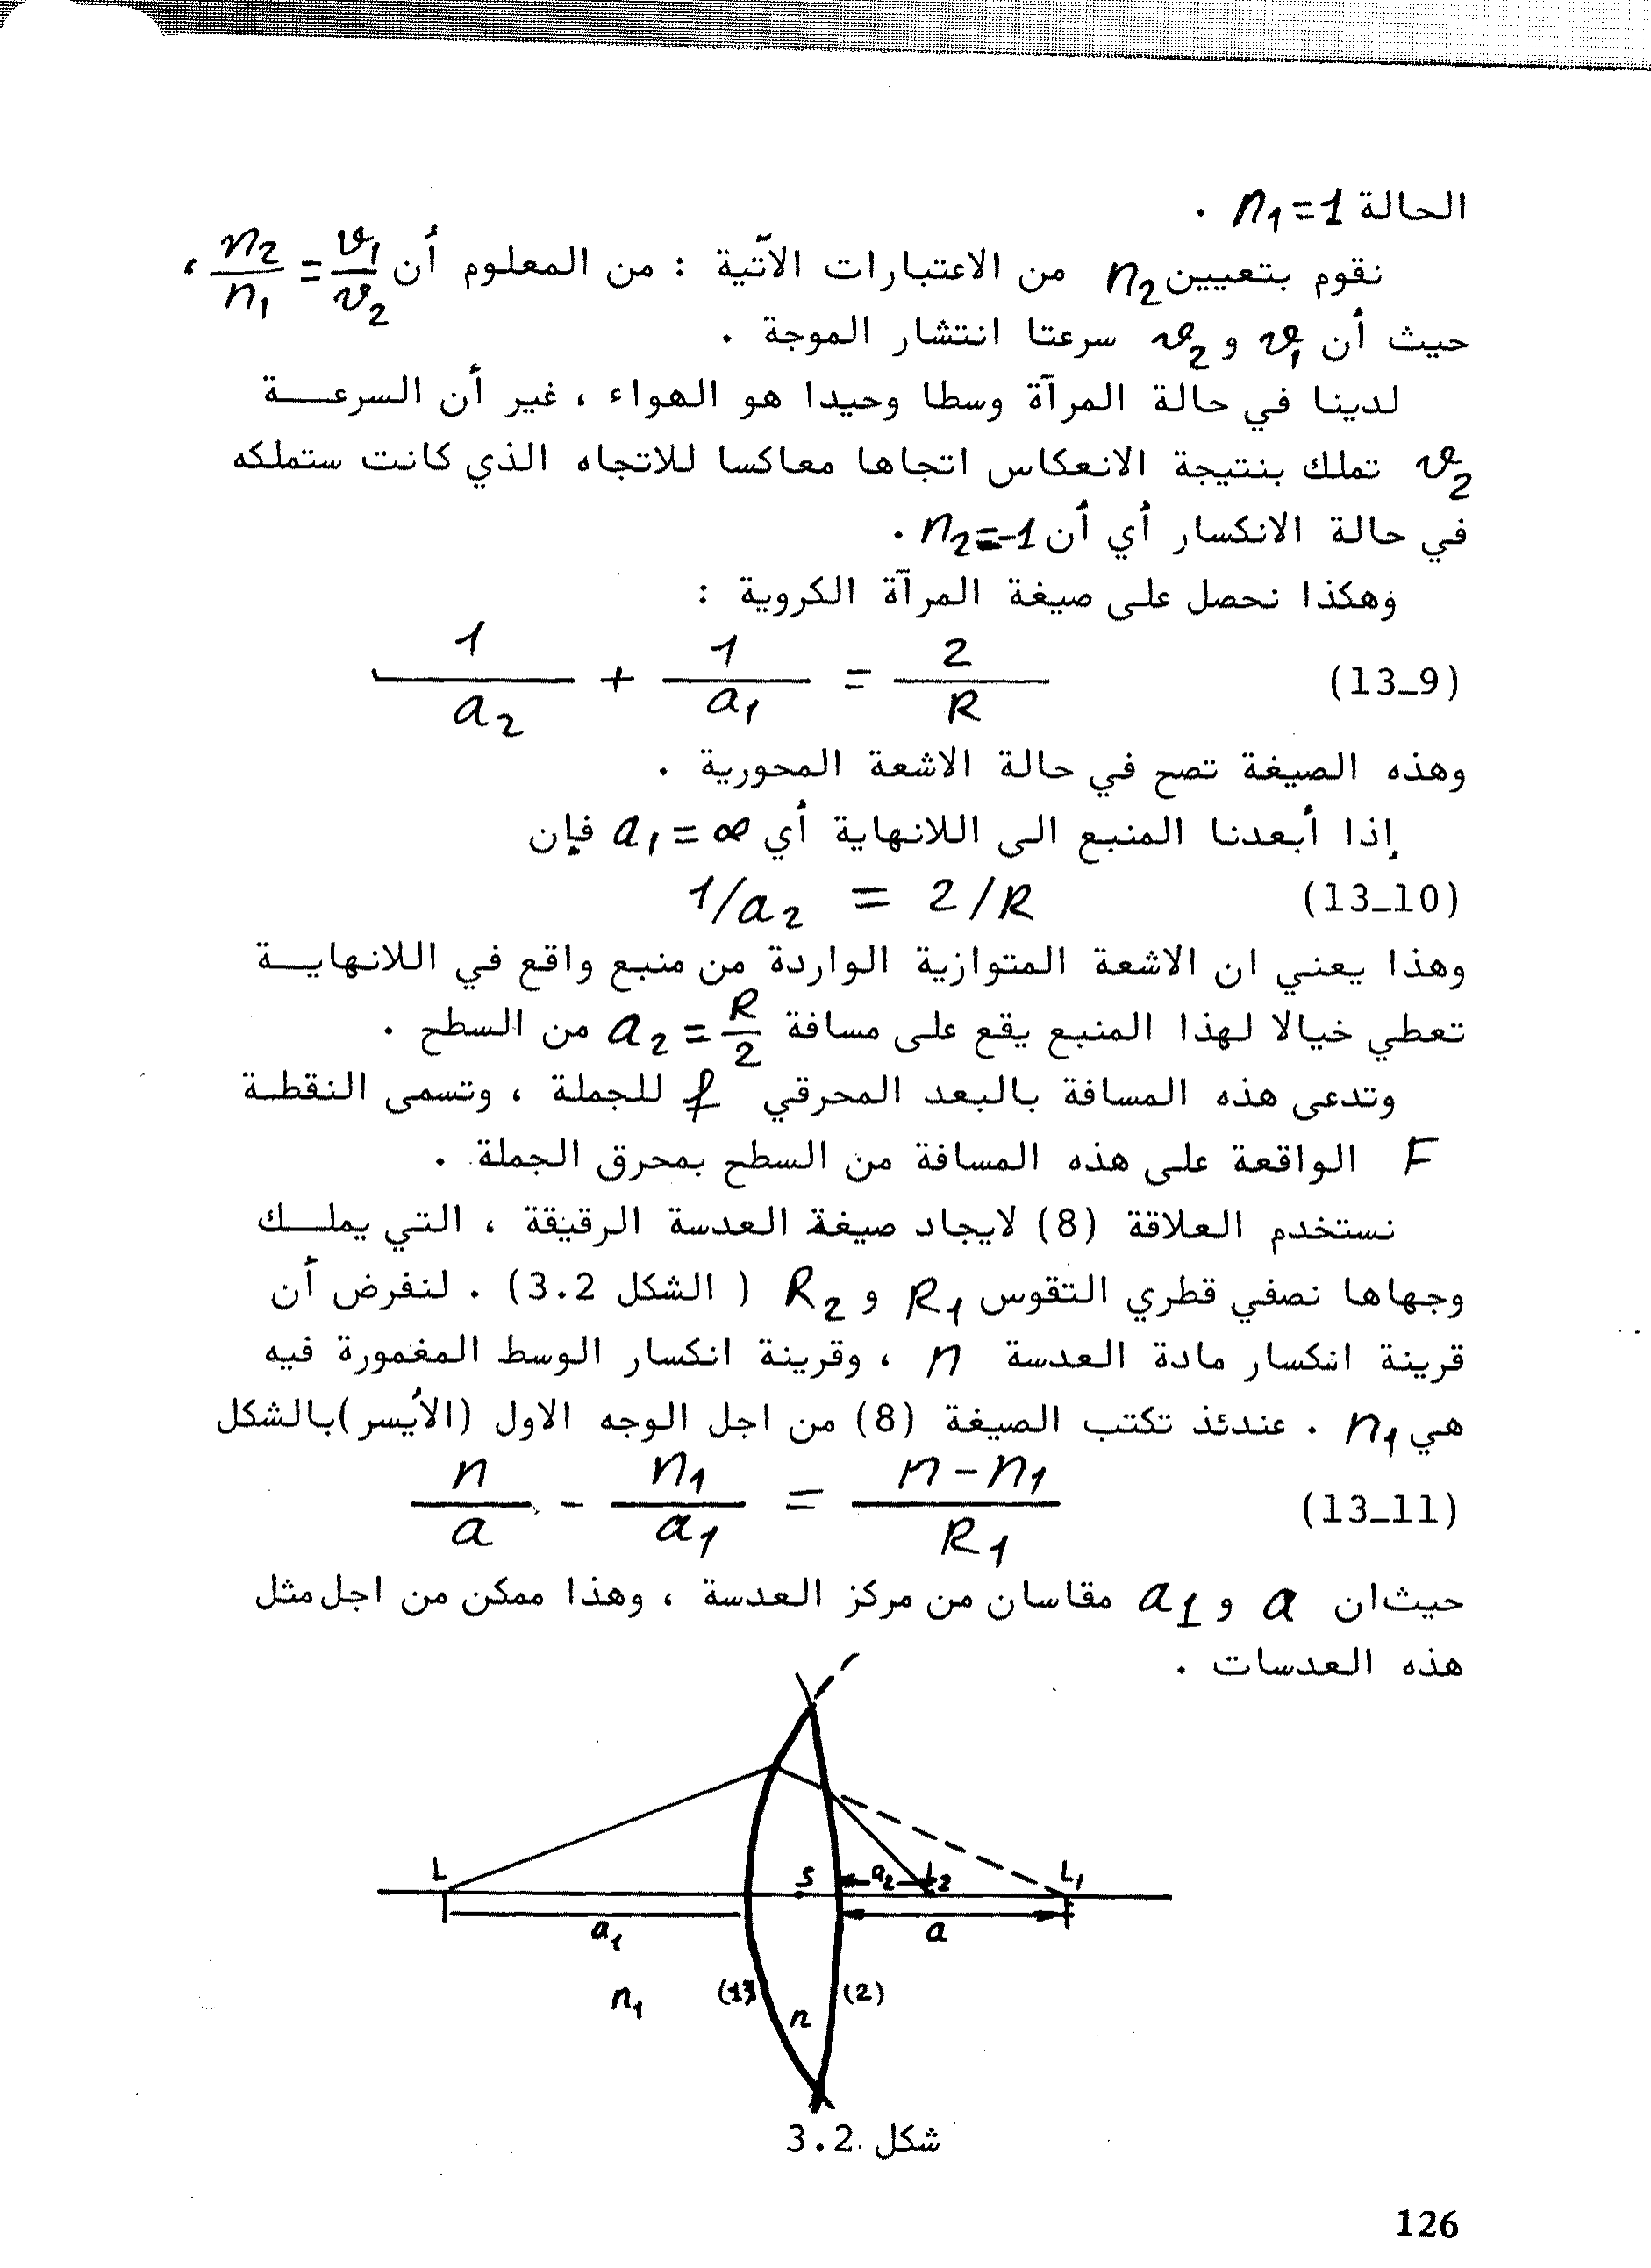 الحالة n₁=1 .
نقوم بتعيين n₂ من الاعتبارات الآتية : من المعلوم أن n₂/n₁ = υ₁/υ₂ ،
حيث أن υ₁ و υ₂ سرعتا انتشار الموجة .
لدينا في حالة المرآة وسطا وحيدا هو الهواء ، غير أن السرعة
υ₂ تملك بنتيجة الانعكاس اتجاها معاكسا للاتجاه الذي كانت ستملكه
في حالة الانكسار أي أن n₂=-1 .
وهكذا نحصل على صيغة المرآة الكروية :
1/a₂ + 1/a₁ = 2/R (13_9)
وهذه الصيغة تصح في حالة الاشعة المحورية .
إذا أبعدنا المنبع الى اللانهاية أي a₁ = ∞ فإن
1/a₂ = 2/R (13_10)
وهذا يعني ان الاشعة المتوازية الواردة من منبع واقع في اللانهاية
تعطي خيالا لهذا المنبع يقع على مسافة a₂ = R/2 من السطح .
وتدعى هذه المسافة بالبعد المحرقي f للجملة ، وتسمى النقطة
F الواقعة على هذه المسافة من السطح بمحرق الجملة .
نستخدم العلاقة (8) لايجاد صيغة العدسة الرقيقة ، التي يملك
وجهاها نصفي قطري التقوس R₁ و R₂ ( الشكل 3.2) . لنفرض أن
قرينة انكسار مادة العدسة n ، وقرينة انكسار الوسط المغمورة فيه
هي n₁ . عندئذ تكتب الصيغة (8) من اجل الوجه الاول (الأيسر)بالشكل
n/a - n₁/a₁ = n-n₁/R₁ (13_11)
حيث ان a و a₁ مقاسان من مركز العدسة ، وهذا ممكن من اجل مثل
هذه العدسات .
L S a₂ L₂ L₁
a₁ a
n₁ (1) n (2)
شكل 3.2
126